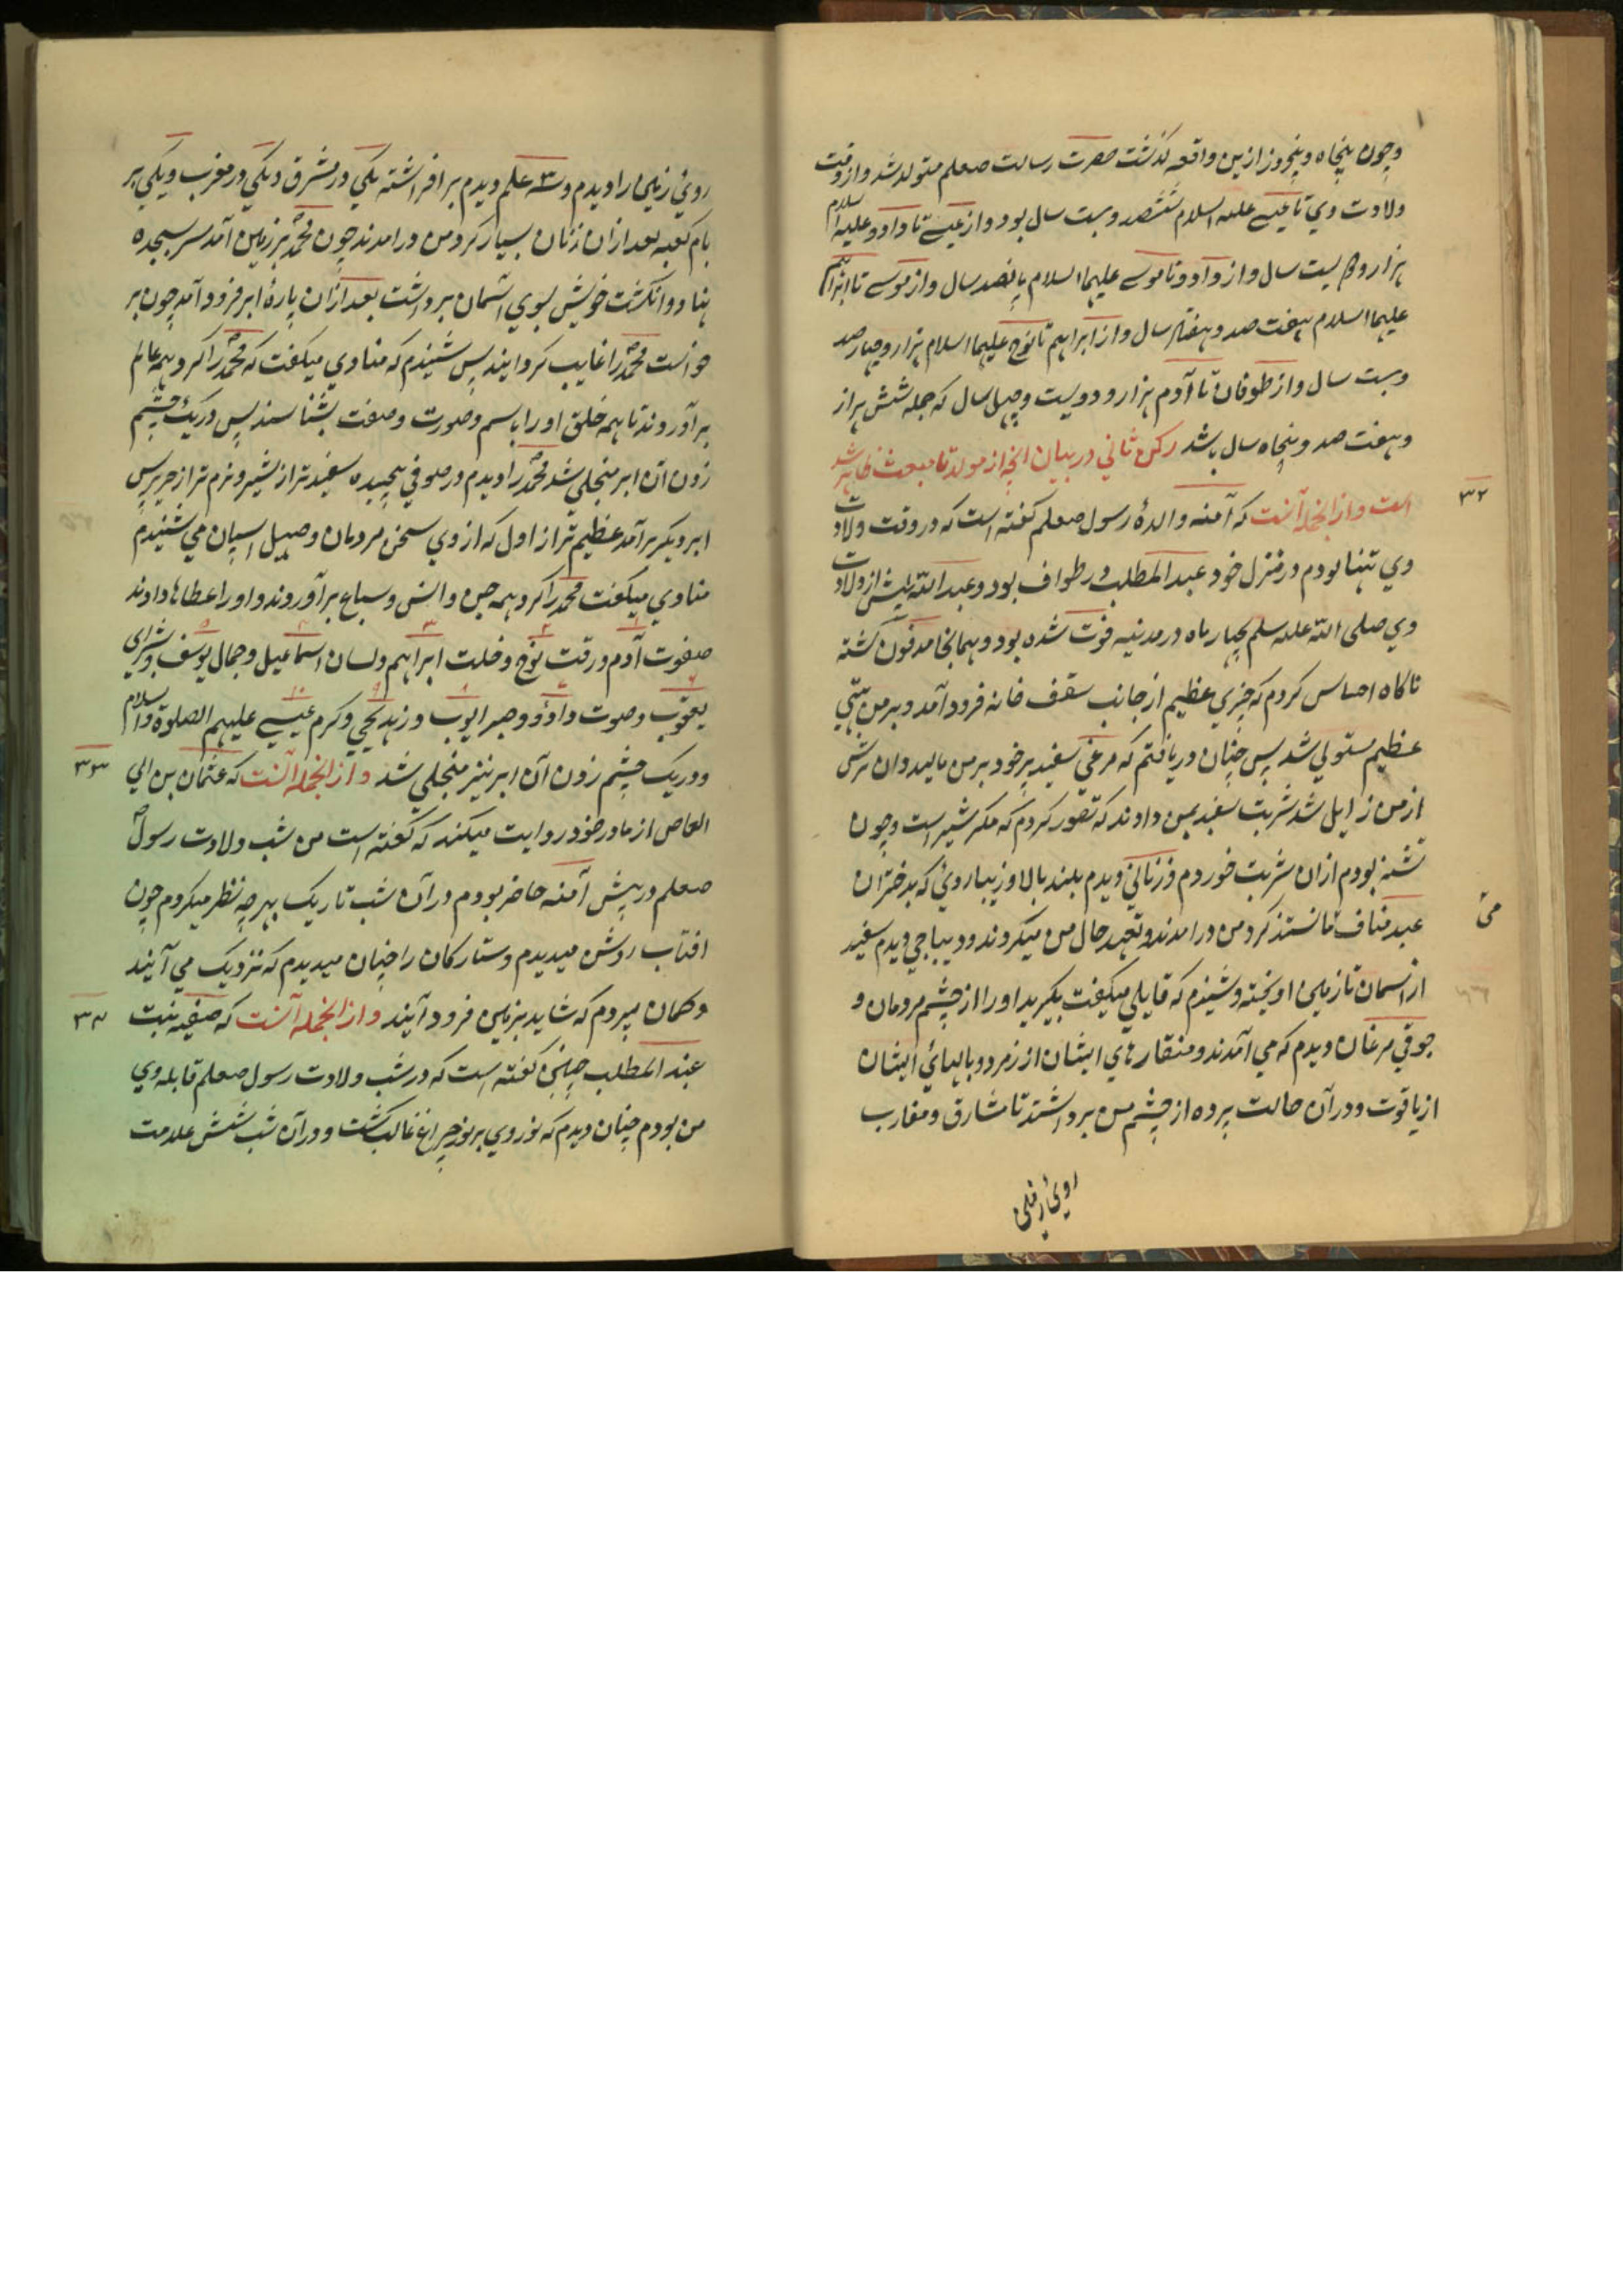 وچون پنجاه وپنجروز ازین واقعه گذشت حضرت رسالت صعلم متولد شد واز وقت
ولادت وی تا عیسے علیه السلام ششصد وبیست سال بود واز عیسے تا داود علیه السلام
هزار و دویست سال واز داود تا موسے علیهما السلام پانصد سال واز موسے تا ابراهیم
علیهما السلام هفت صد و هفتاد سال واز ابراهیم تا نوح علیهما السلام هزار وچهار صد
وبیست سال واز طوفان تا آدم هزار و دویست وچهل سال که جمله شش هزار
وهفت صد وپنجاه سال باشد رکن ثانی در بیان انچه از مولد تا مبعث ظاهر شد
۳۲
است واز انجمله آنست که آمنه والدهٔ رسول صعلم گفته است که در وقت ولادت
وی تنها بودم در منزل خود عبد المطلب در طواف بود وعبد الله پیش از ولادت
وی صلی الله علیه سلم بچهار ماه در مدینه فوت شده بود وهمانجا مدفون گشته
ناگاه احساس کردم که چیزی عظیم از جانب سقف خانه فرود آمد وبر من هیبتی
عظیم مستولی شد پس چنان دریافتم که مرغی سفید پر خود بر من مالید وان ترس
از من زایل شد شربت سفید بمن دادند که تصور کردم که مگر شیر است وچون
تشنه بودم ازان شربت خوردم وزنانی دیدم بلند بالا وزیبا روئ که بدختران
عبد مناف مانستند گرد من در امدند وتعهد حال من میکردند ودیباجی دیدم سفید
از اسمان تا زمین اویخته وشنیدم که قایلی میگفت بگیرید او را از چشم مردمان و
جوقی مرغان دیدم که می آمدند ومنقارهای ایشان از زمرد وبالهائ ایشان
از یاقوت ودر آن حالت پرده از چشم من برداشتند تا مشارق ومغارب
روئ زمین
روئ زمین را دیدم و۳سه علم دیدم بر افراشته یکی در مشرق ویکی در مغرب ویکی بر
بام کعبه بعد ازان زنان بسیار گرد من در امدند چون محمد بر زمین آمد سر بسجده
نهاد وانگشت خویش بسوی آسمان برداشت بعد ازان پارهٔ ابر فرود آمد چون بر
خواست محمد را غایب گردانید پس شنیدم که منادی میگفت که محمد را گرد همه عالم
بر آوردند تا همه خلق او را باسم وصورت وصفت بشناسند پس در یک چشم
زدن آن ابر منجلی شد محمد را دیدم در صوفی پیچیده سفید تر از شیر ونرم تر از حریر پس
ابر دیگر بر آمد عظیم تر از اول که از وی سخن مردمان وصهیل اسپان می شنیدم
منادی میگفت محمد را گرد همه جن وانس وسباع بر آوردند واو را عطاها دادند
صفوت آدم ورقت نوح وخلت ابراهیم ولسان اسماعیل وجمال یوسف وبشرای
یعقوب وصوت داؤد وصبر ایوب وزهد یحیی وکرم عیسے علیهم الصلوة والسلام
۳۳
ودر یک چشم زدن آن ابر نیز منجلی شد واز انجمله آنست که عثمان بن ابی
العاص از مادر خود روایت میکند که گفته است من شب ولادت رسول
صعلم در پیش آمنه حاضر بودم در آن شب تاریک بهر چه نظر میکردم چون
افتاب روشن میدیدم وستارگان را چنان میدیدم که نزدیک می آیند
۳۴
وگمان میبردم که شاید بزمین فرود آیند واز انجمله آنست که صفیه بنت
عبد المطلب چنین گفته است که در شب ولادت رسول صعلم قابله وی
من بودم چنان دیدم که نور وی بر نور چراغ غالب گشت ودر آن شب شش علامت